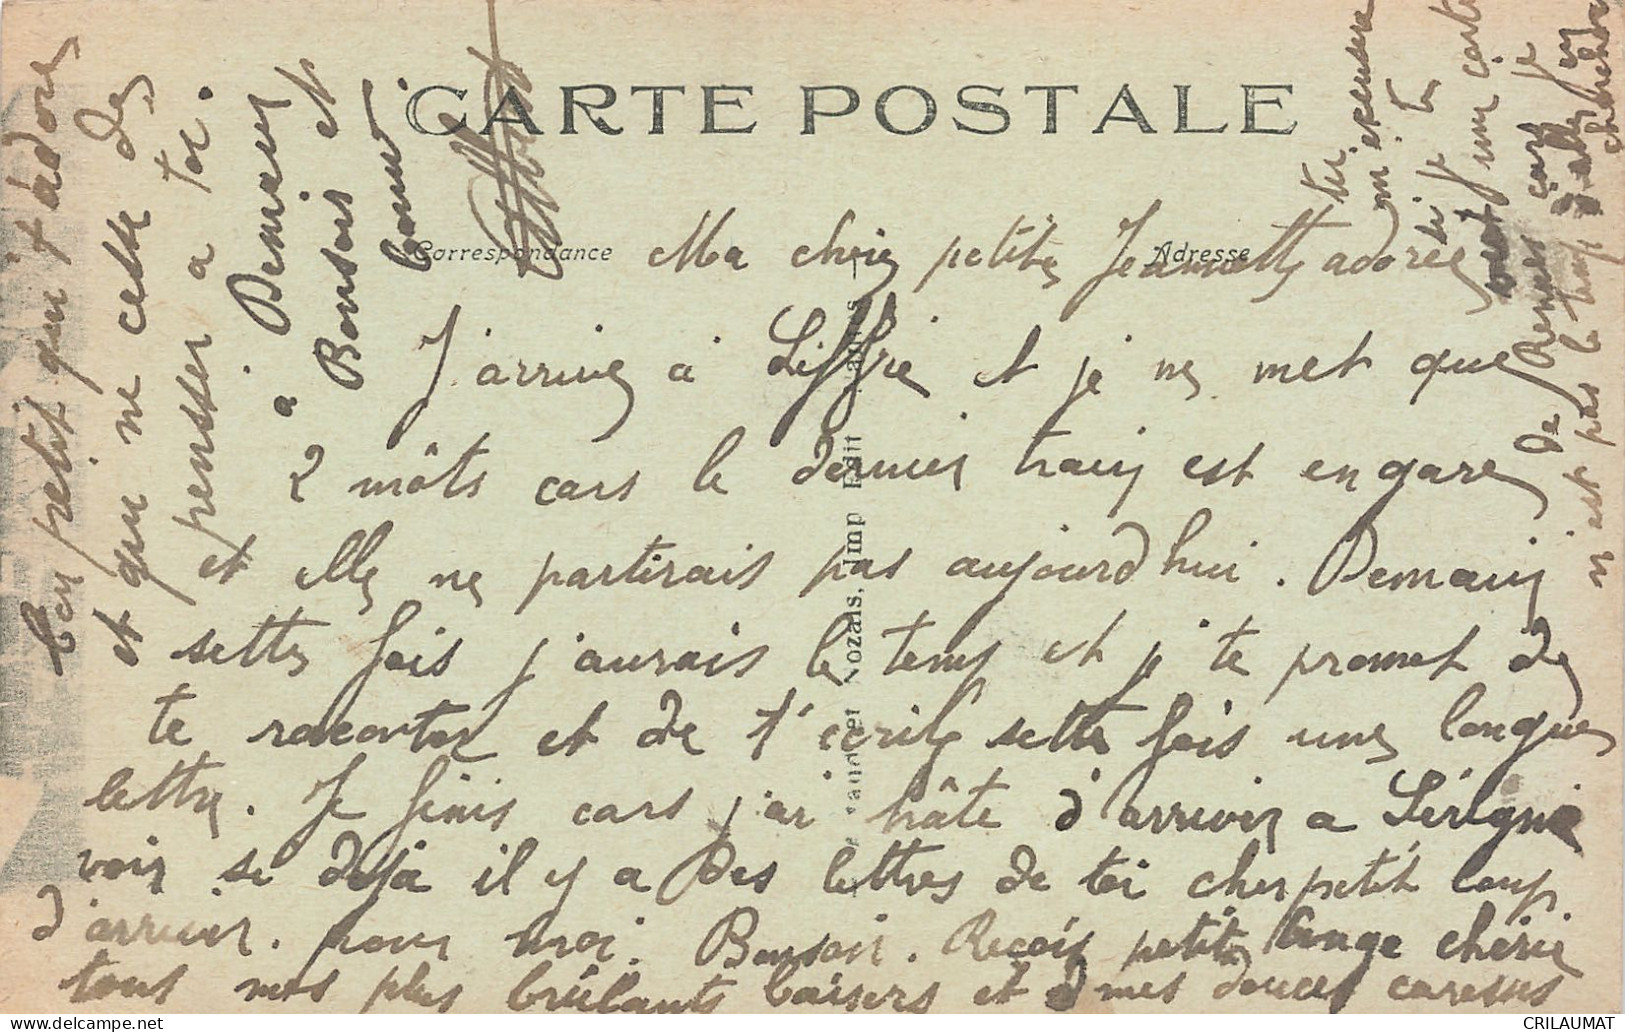 CARTE POSTALE
Correspondance
Adresse
Ma chérie petite Jeannette adorée
J'arrive à Liffré et je ne met que
2 môts cars le dernier train est en gare
et elle ne partirais pas aujourd'hui. Demain
sette fois j'aurais le temp et je te promet de
te raconter et de t'écrire sette fois une longue
lettre. Je finis cars j'ai hâte d'arriver a Sérigné
voir si déjà il y a des lettres de toi cher petit loup
d'arriver pour moi. Bonsoir. Reçois petite ange chérie
tous mes plus brûlants baisers et mes douces caresses
ton petit qui t'adore
et qui ne cesse de
pensser a toi.
a Demain
Bonsoir et
bonne
tu m'excusera
si je t'ai
une carte
de Rennes car je
n'est pas le temp d'aller en
chercher
Edit
Imp
Nozais,
CRILAUMAT